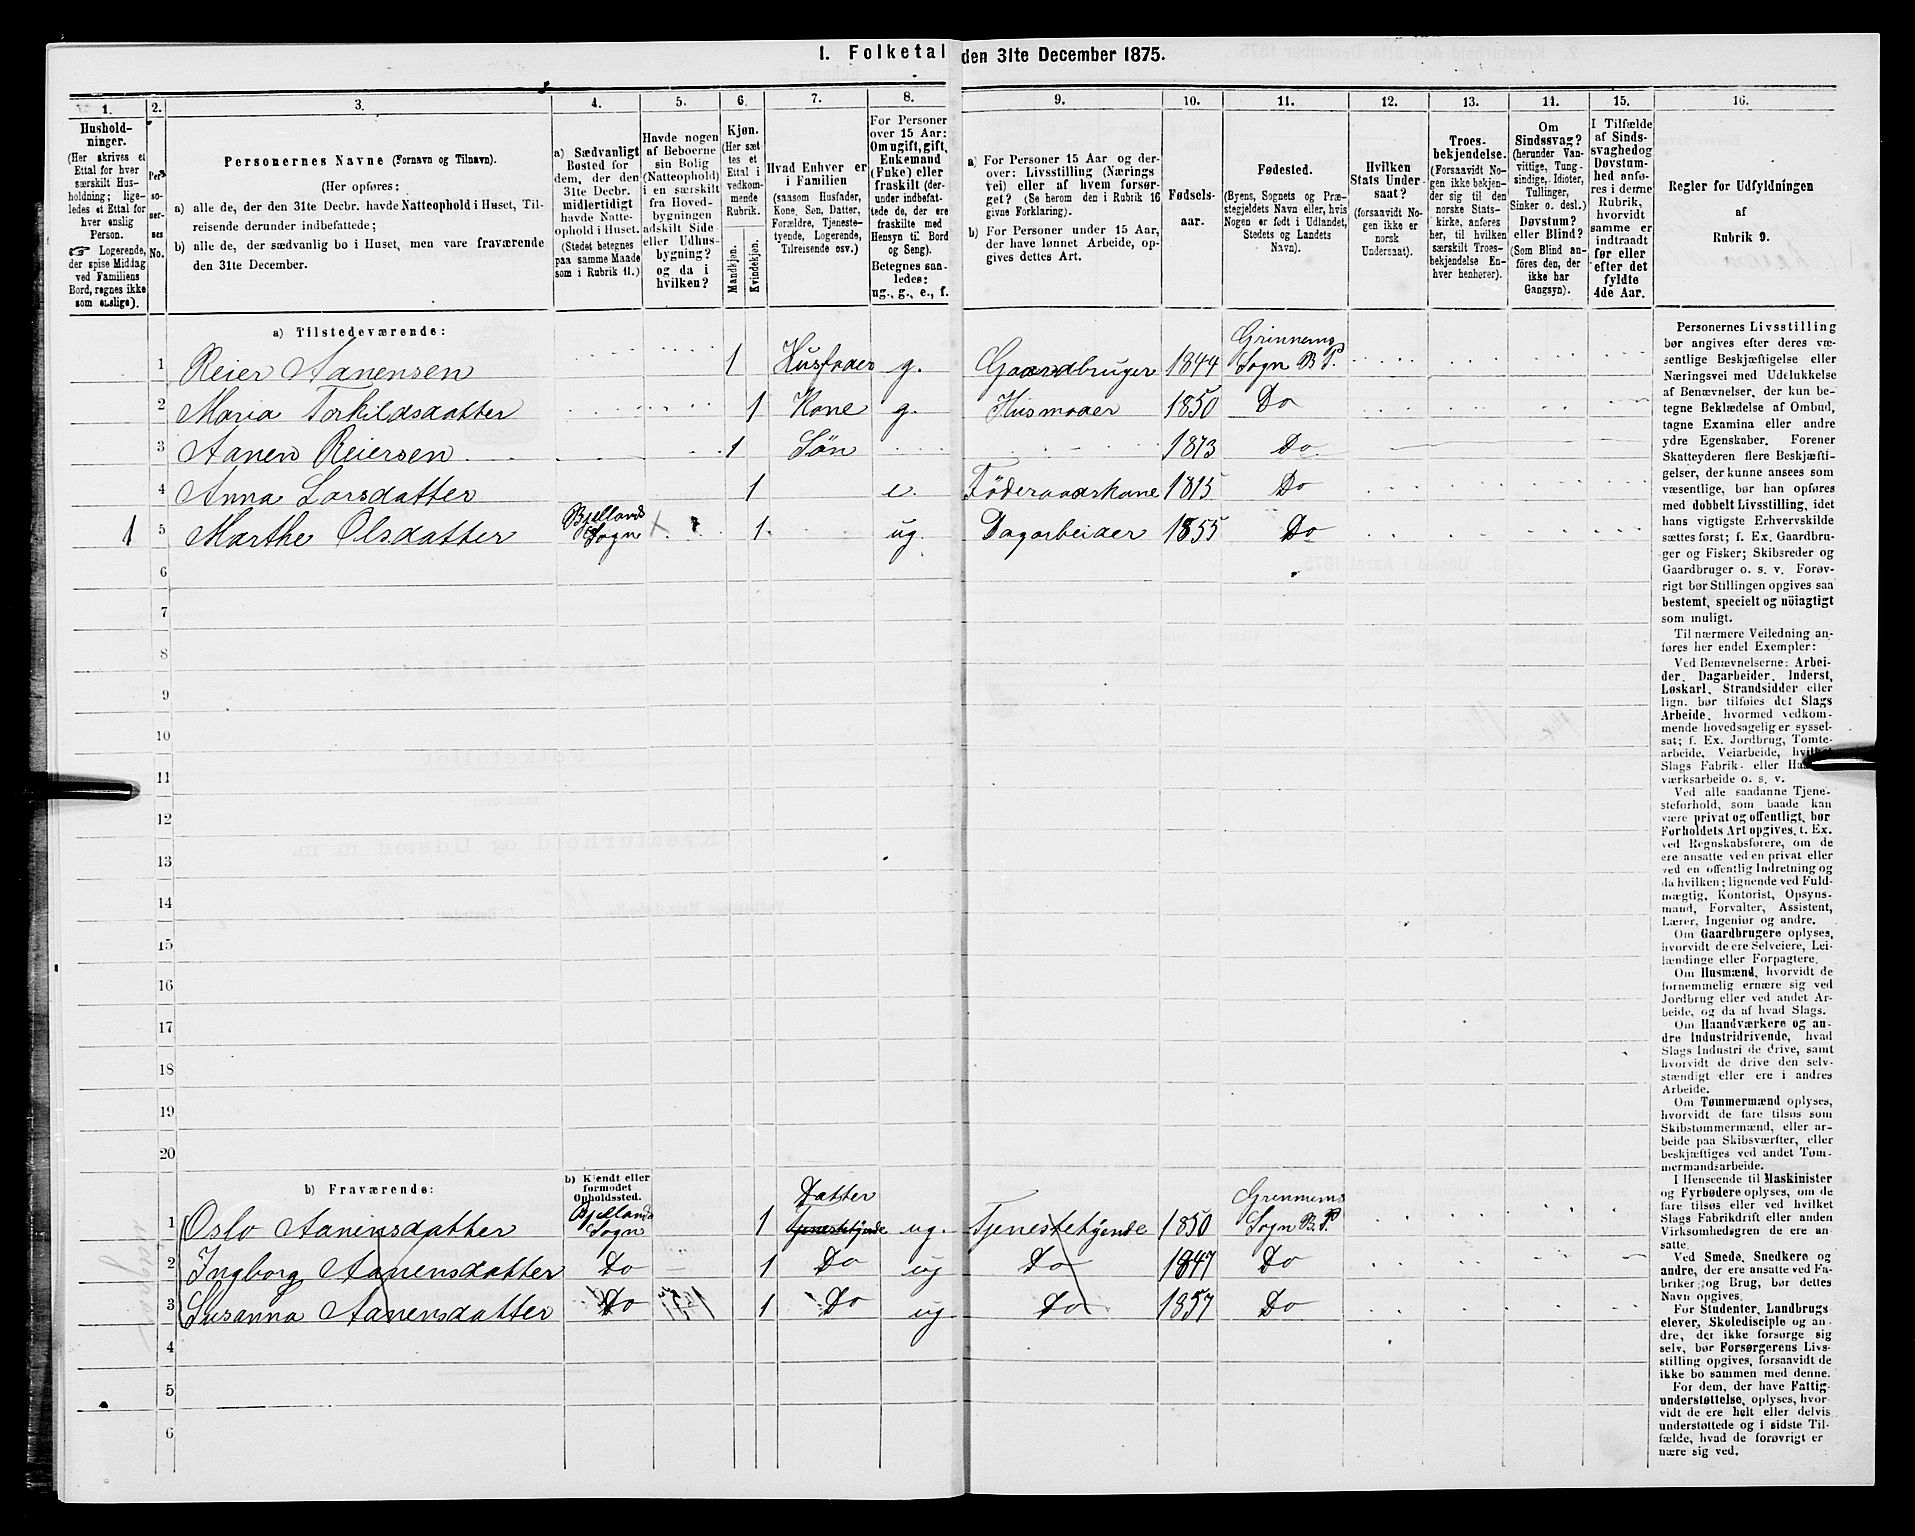 1. Folketal den 31te December 1875.
1.
Hushold-
ninger.
(Her skrives et
Ettal for hver
særskilt Hus-
holdning; lige-
ledes et Ettal for
hver enslig
Person.
☞ Logerende,
der spise Middag
ved Familiens
Bord, regnes ikke
som enslige).
2.
Per-
so-
ner-
nes
No.
3.
Personernes Navne (Fornavn og Tilnavn).
(Her opføres:
a) alle de, der den 31te Decbr. havde Natteophold i Huset, Til-
reisende derunder indbefattede;
b) alle de, der sædvanlig bo i Huset, men vare fraværende
den 31te December.
4.
a) Sædvanligt
Bosted for
dem, der den
31te Decbr.
midlertidigt
havde Natte-
ophold i Huset.
(Stedet betegnes
paa samme Maade
som i Rubrik 11.)
5.
Havde nogen
af Beboerne
sin Bolig
(Natteophold)
i en særskilt
fra Hoved-
bygningen
adskilt Side
eller Udhus-
bygning?
og da i
hvilken?
6.
Kjøn.
(Her sæt-
tes et
Ettal i
vedkom-
mende
Rubrik.
Mandkjøn.
Kvindekjøn.
7.
Hvad Enhver er
i Familien
(saasom Husfader,
Kone, Søn, Datter,
Forældre, Tjeneste-
tyende, Logerende,
Tilreisende osv.)
8.
For Personer
over 15 Aar:
Om ugift, gift,
Enkemand
(Enke) eller
fraskilt (der-
under indbefat-
tede de, der ere
fraskilte med
Hensyn til Bord
og Seng).
Betegnes saa-
ledes:
ug., g., e., f.
9.
a) For Personer 15 Aar og der-
over: Livsstilling (Nærings
vei) eller af hvem forsør-
get? (Se herom den i Rubrik 16
givne Forklaring).
b) For Personer under 15 Aar,
der have lønnet Arbeide, op-
gives dettes Art.
10.
Fødsels-
aar.
11.
Fødested.
(Byens, Sognets og Præ-
stegjeldets Navn eller, hvis
Nogen er født i Udlandet,
Stedets og Landets
Navn).
12.
Hvilken
Stats Under-
saat?
(forsaavidt No-
gen ikke er
norsk
Undersaat).
13.
Troes-
bekjendelse.
(Forsaavidt No-
gen ikke bekjen-
der sig til den
norske Stats-
kirke, anføres
her, til hvilken
særskilt Troes-
bekjendelse En-
hver henhører).
14.
Om
Sindssvag?
(herunder Van-
vittige, Tung-
sindige, Idioter,
Tullinger,
Sinker o. desl.)
Døvstum?
eller Blind?
(Som Blind an-
føres den, der
ikke har
Gangsyn).
15.
I Tilfælde
af Sinds-
svaghed og
Døvstum-
hed anfø-
res i denne
Rubrik,
hvorvidt
samme er
indtraadt
før eller
efter det
fyldte
4de Aar.
16.
Regler for Udfyldningen
af
Rubrik 9.
a) Tilstedeværende:
1 Reier Aanensen 1 Husfader g. Gaardbruger 1844 Grinnems Sogn B P.
2 Maria Torkildsdatter 1 Kone g. Husmoder 1850 Do
3 Aanen Reiersen 1 Søn 1873 Do
4 Anna Larsdatter 1 e. Föderaadskone 1815 Do
1 5 Marthe Olsdatter Bjellands Sogn 1 ug. Dagarbeider 1855 Do
6
7
8
9
10
11
12
13
14
15
16
17
18
19
20
b) Fraværende:
b) Kjendt eller
formodet
Opholdssted.
1 Oslo Aanensdatter Bjellands Sogn 1 Datter Tjenestetyende ug. Tjenestetyende 1850 Grinnems Sogn B P
2 Ingborg Aanensdatter Do 1 Do ug Do 1847 Do
3 Susanna Aanensdatter Do 1 Do ug Do 1857 Do
4
5
6
Personernes Livsstilling
bør angives efter deres væ-
sentlige Beskjæftigelse eller
Næringsvei med Udelukkelse
af Benævnelser, der kun be-
tegne Beklædelse af Ombud,
tagne Examina eller andre
ydre Egenskaber. Forener
Skatteyderen flere Beskjæfti-
gelser, der kunne ansees som
væsentlige, bør han opføres
med dobbelt Livsstilling, idet
hans vigtigste Erhvervskilde
sættes først; f. Ex. Gaardbru-
ger og Fisker; Skibsreder og
Gaardbruger o. s. v. Forøv-
rigt bør Stillingen opgives saa
bestemt, specielt og nöiagtigt
som muligt.
Til nærmere Veiledning an-
føres her endel Exempler:
Ved Benævnelserne: Arbei-
der, Dagarbeider, Inderst,
Løskarl, Strandsidder eller
lign. bør tilføies det Slags
Arbeide, hvormed vedkom-
mende hovedsagelig er syssel-
sat; f. Ex. Jordbrug, Tomte-
arbeide, Veiarbeide, hvilket
Slags Fabrik- eller Haand-
værksarbeide o. s. v.
Ved alle saadanne Tjene-
steforhold, som baade kan
være privat og offentligt, bør
Forholdets Art opgives, t. Ex.
ved Regnskabsførere, om de
ere ansatte ved en privat eller
ved en offentlig Indretning og
da hvilken; lignende ved Fuld-
mægtig, Kontorist, Opsyns-
mand, Forvalter, Assistent,
Lærer, Ingeniør og andre.
Om Gaardbrugere oplyses,
hvorvidt de ere Selveiere, Lei-
lændinge eller Forpagtere.
Om Husmænd, hvorvidt de
fornemmelig ernære sig ved
Jordbrug eller ved andet Ar-
beide, og da af hvad Slags.
Om Haandværkere og an-
dre Industridrivende, hvad
Slags Industri de drive, samt
hvorvidt de drive den selv-
stændigt eller ere i andres
Arbeide.
Om Tømmermænd oplyses,
hvorvidt de fare tilsøs som
Skibstømmermænd, eller ar-
beide paa Skibsværfter, eller
beskjæftiges ved andet Tøm-
mermandsarbeide.
I Henseende til Maskinister
og Fyrbødere oplyses, om de
fare tilsøs eller ved hvilket
Slags Fabrikdrift eller anden
Virksomhedsgren de ere an-
satte.
Ved Smede, Snedkere og
andre, der ere ansatte ved Fa-
briker og Brug, bør dettes
Navn opgives.
For Studenter, Landbrugs
elever, Skoledisciple og an-
dre, der ikke forsørge sig
selv, bør Forsørgerens Livs-
stilling opgives, forsaavidt de
ikke bo sammen med denne.
For dem, der have Fattig-
understøttelse, oplyses, hvor-
vidt de ere helt eller delvis
understøttede og i sidste Til-
fælde, hvad de forøvrigt er-
nære sig ved.